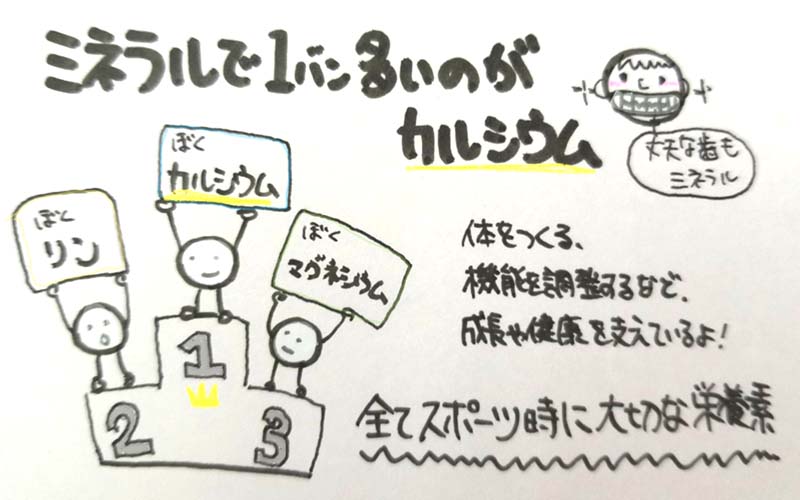 ミネラルで1バン多いのが
カルシウム
丈夫な歯も
ミネラル
ぼく
カルシウム
ぼく
リン
ぼく
マグネシウム
体をつくる、
機能を調整するなど、
成長や健康を支えているよ!
1
2
3
全てスポーツ時に大切な栄養素